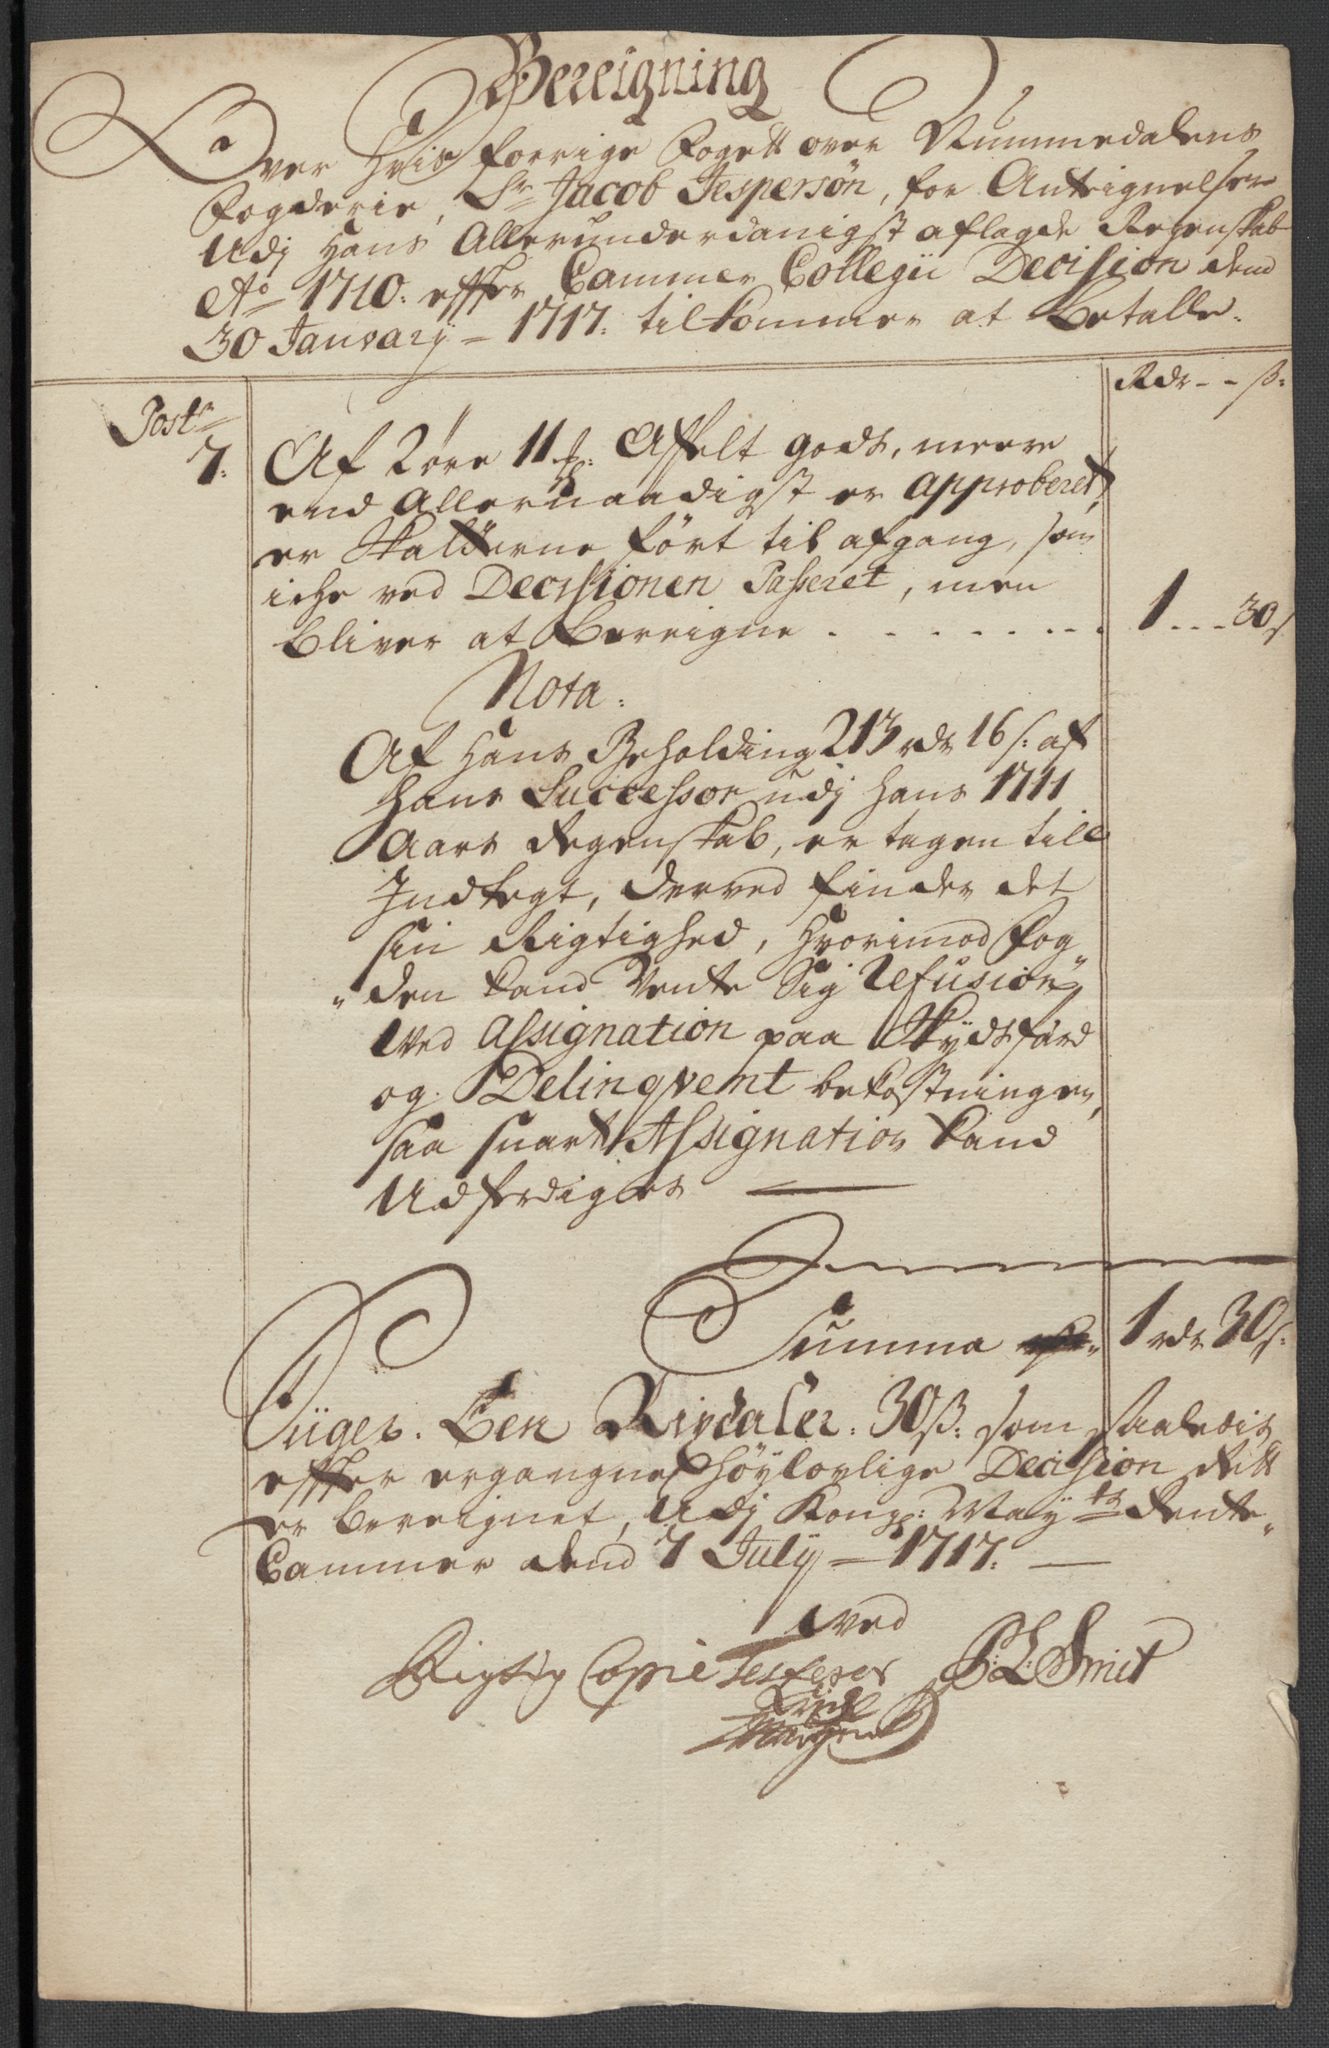 Bereigning
Over hvis forrige Fogett over Nummedalens
Fogderie, Sr Jacob Jespersøn, for Anteignelserne
Udj hans Allerunderdanigst aflagde Regenskab
Ao 1710. effter Cammer Collegii Decision dend
30 January - 1717. tilkommer at betalle.
Rdr - - ß:
Posta
7.
Af 2 øre 11 Affelt godt, meere
end Allernaadigst er approberet,
er Skatterne ført til afgang, som
iche ved Decisionen Passeret, men
bliver at bereigne . . . . . . . . 1 - - - 30 s
Nota:
Af hans Beholding 213 rdr 16 s: af
hans Successor udj hans 1711
Aars Regenskab, er tagen till
Indtegt, derved finder det
sin Rigtighed, hvorimod Fog
"den kand Vente Sig Refusion
ved Assignation paa Skydtsfærd
og Delinqvent bekostningen,
saa snart Assignation kand
Udferdiges
Summa 1 rdr 30 s:
Siiger. Een Rixdaler. 30 ß: som saaledis
effter ergangne høylovlige Decision Rett
er bereignet, Udj Kongl: May ts Rente
Cammer dend 7 July - 1717.
ved
Rigtig Copie Testerer P: L: Smit